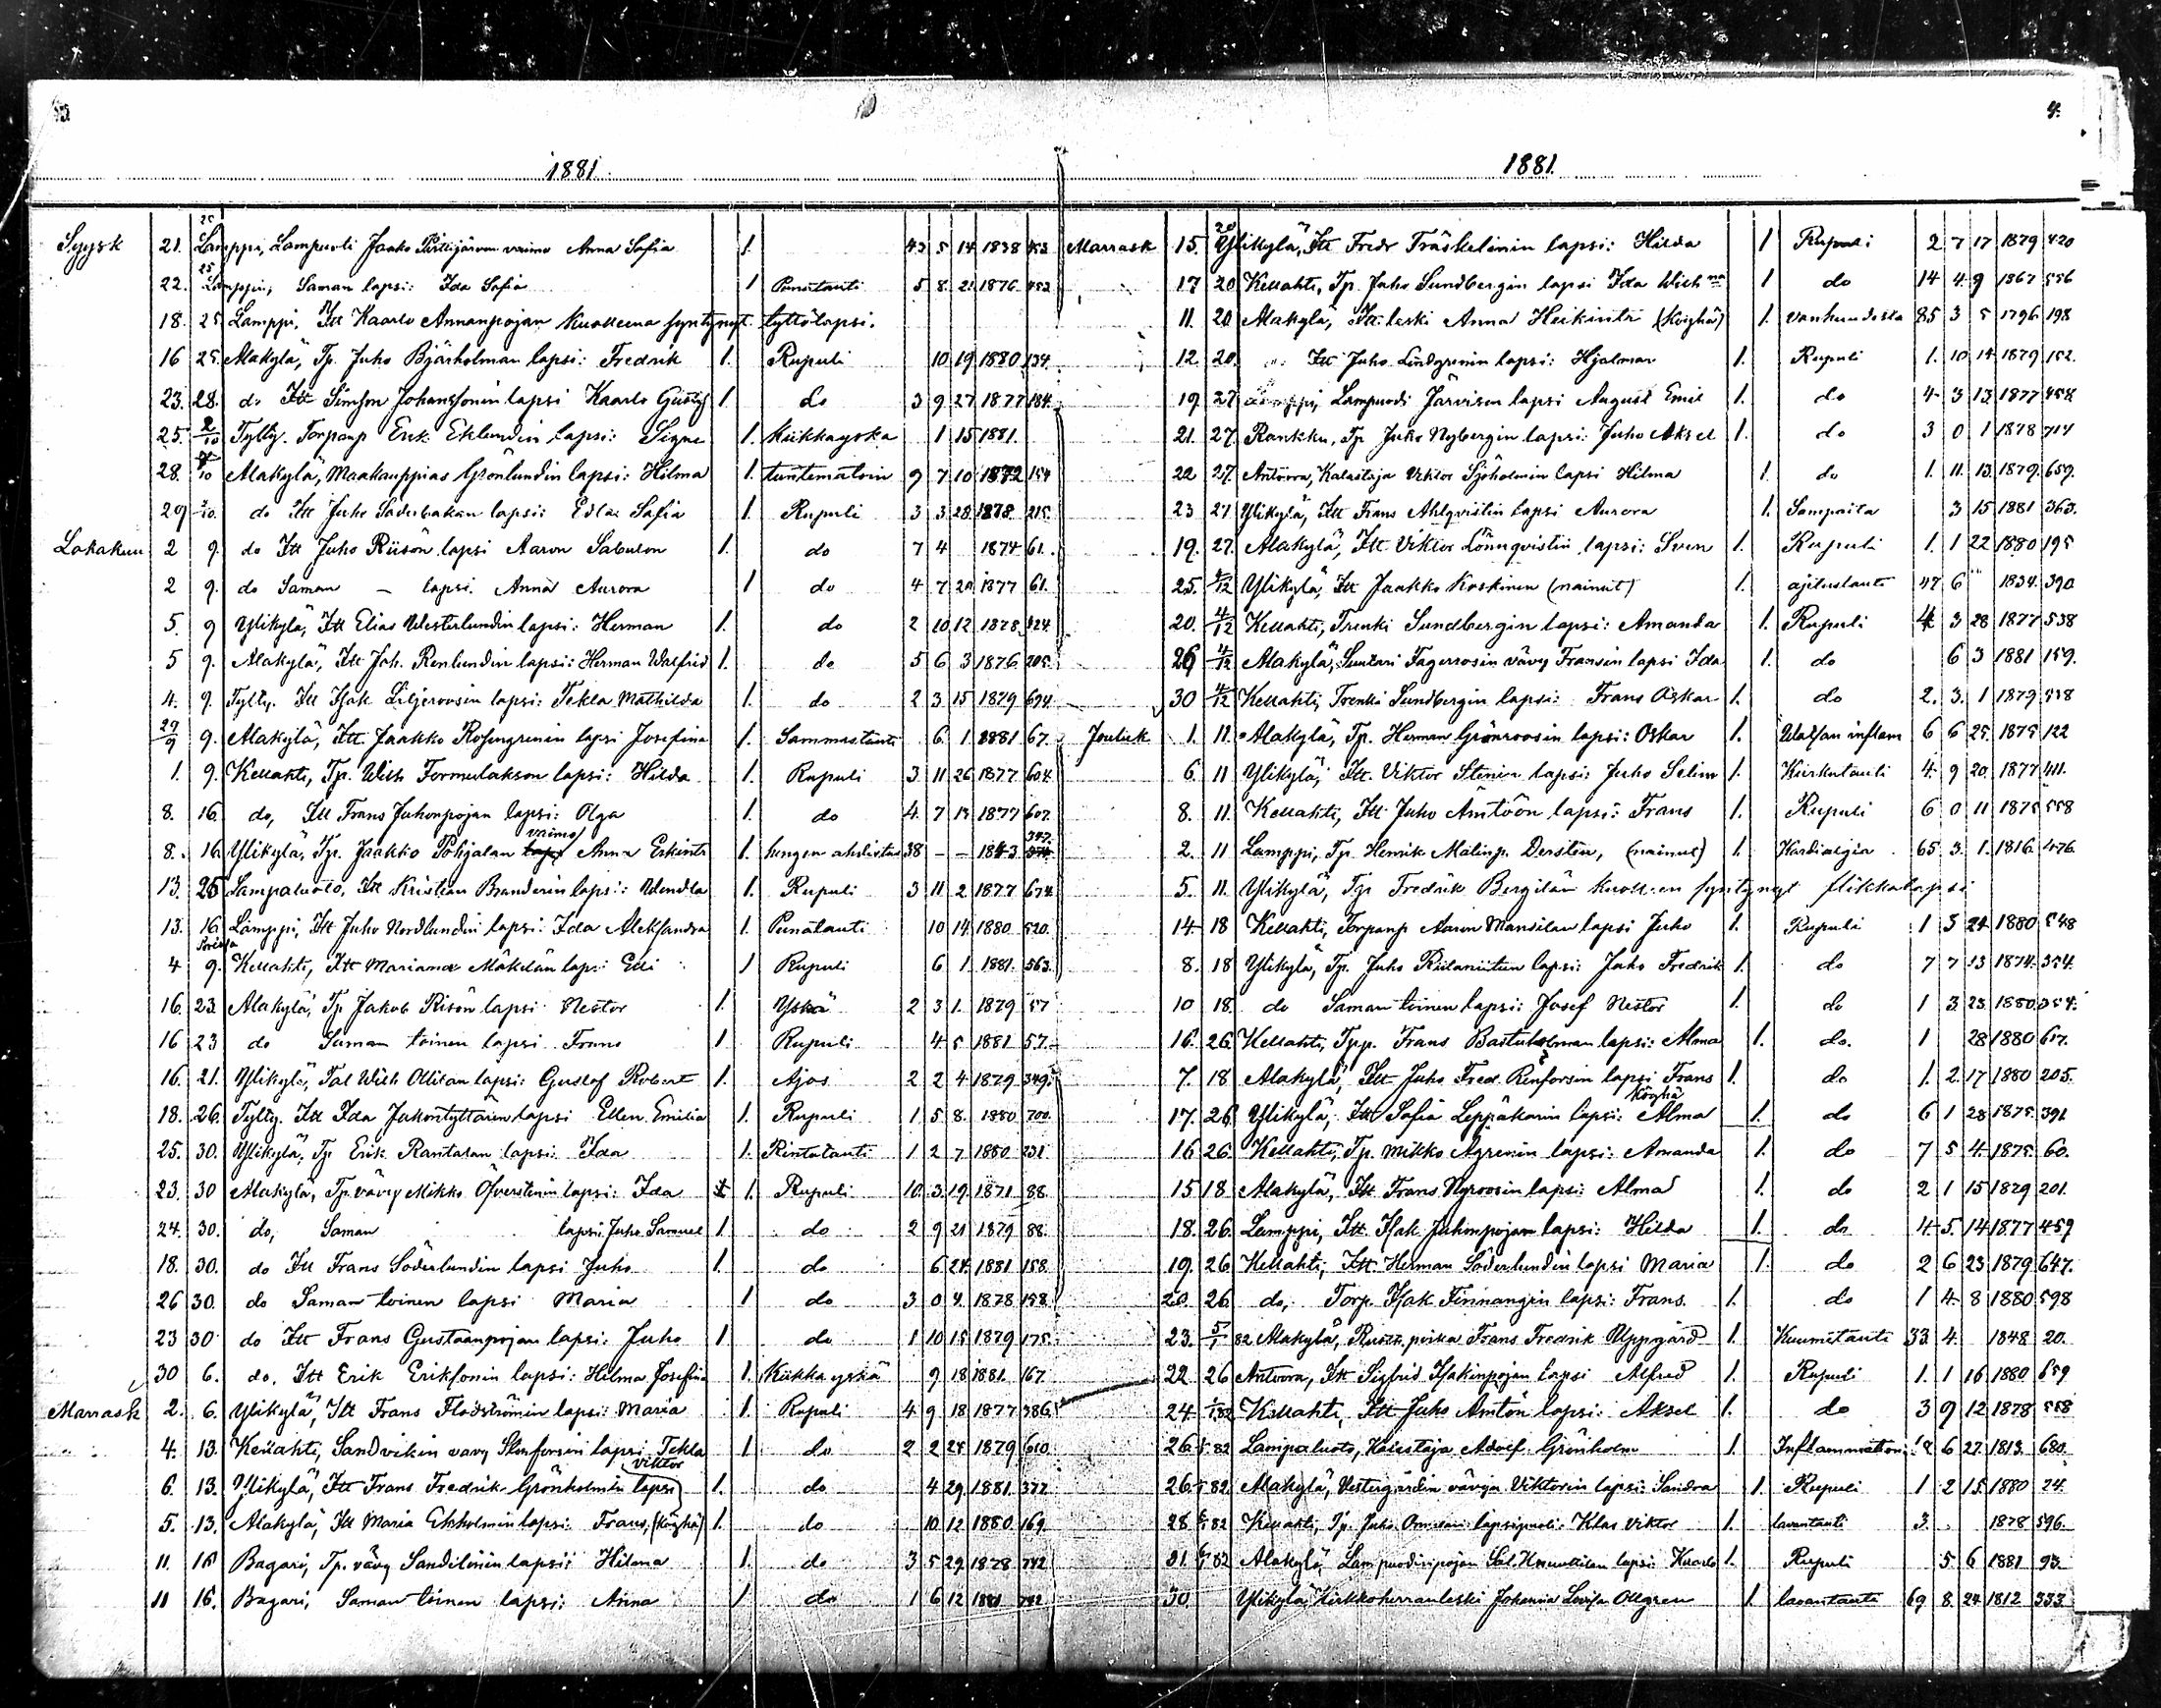 4.
1881.
1881.
Syysk 21. 25 Lamppi, Lampuoti Jaako Pirttijärven vaimo Anna Sofia 1. 43 5 14 1838 453
22. 25 Lamppi, Saman lapsi: Ida Sofia 1 Punatauti 5 8 21 1876 452
18. 25 Lamppi, Itt Kaarlo Annanpojan kuolleena syntynyt tyttölapsi.
16 25. Alakylä, Tp. Juho Bjärholman lapsi: Fredrik 1. Rupuli 10 19 1880 134
23. 28. do Itt Simson Johanssonin lapsi Kaarlo Gustaf 1. do 3 9 27 1877 184.
25. 2/10 Tyltty. Torpanp Erik Eklundin lapsi: Signe 1. Kiikkayskä 1 15 1881.
28. /10 Alakylä, Maakauppias Grönlundin lapsi: Hilma 1. tuntematoin 9 7 10 1872 154
29 /10. do Itt Juho Söderbakan lapsi: Edla Sofia 1. Rupuli 3 3 28 1878 215.
Lokakuu 2 9. do Itt Juho Riisön lapsi Aaron Sabulon 1. do 7 4 1874 61.
2 9. do Saman – lapsi. Anna Aurora 1 do 4 7 20 1877 61.
5. 9 Ylikylä, Itt Elias Westerlundin lapsi: Herman 1. do 2 10 12 1878 424
5 9. Alakylä, Itt Joh. Renlundin lapsi: Herman Walfrid 1. do 5 6 3 1876 205.
4. 9. Tyltty. Itt Isak Liljeroosin lapsi: Tekla Mathilda 1. do 2 3 15 1879 694.
29/9 9. Alakylä, Itt. Jaakko Rosengrenin lapsi Josefina 1. Sammastauti 6. 1. 1881 67.
1. 9. Kellahti, Tp. Wilh Tormulakson lapsi: Hilda 1. Rupuli 3 11 26 1877 604.
8. 16. do, Itt Frans Juhonpojan lapsi: Olga 1. do 4. 7 13 1877 607.
8. 16. Ylikylä, Tp. Jaakko Pohjalan vaimo Anna Eskintr 1. hengen ahdistus 38 – – 1843 347.
13. 25 Lampaluoto, Itt Kristian Branderin lapsi: Wendla 1. Rupuli 3 11 2 1877 674
13. 16 Lamppi, Itt Juho Nordlundin lapsi: Ida Aleksandra 1. Punatauti 10 14 1880 520.
4 9. Porissa Kellahti, Itt Mariana Mäkelän lapsi Elli 1 Rupuli 6 1. 1881. 563.
16. 23. Alakylä, Tp Jakob Risön lapsi Nestor 1. Yskä 2 3 1. 1879 57
16 23 do Saman toinen lapsi Frans 1 Rupuli 4 5 1881 57.
16. 21. Ylikylä, Tal Wilh Ollilan lapsi: Gustaf Robert 1. Ajos 2 2 4 1879 349.
18. 26. Tyltty. Itt Ida Jakontyttären lapsi Ellen Emilia 1. Rupuli 1 5 8. 1880 700.
25. 30. Ylikylä, Tp Erik Rantasan lapsi: Ida 1. Rintatauti 1 2 7 1880 231
23. 30 Alakylä, Tp. vävy Mikko Öfverstenin lapsi: Ida 1. Rupuli 10. 3. 19. 1871 88.
24. 30. do, Saman lapsi: Juho Samuel 1. do 2 9 21 1879 88.
18. 30. do Itt Frans Söderlundin lapsi Juho 1. do 6 24. 1881 158
26 30. do Saman toinen lapsi Maria 1 do 3 0 4. 1878 158.
23 30 do Itt Frans Gustaanpojan lapsi: Juho 1. do 1 10 15 1879 175.
30 6. do. Itt Erik Eriksonin lapsi: Hilma Josefina 1. Kiikka yskä 9 18 1881. 167
Marrask 2. 6. Ylikylä, Itt Frans Flodströmin lapsi: Maria 1. Rupuli 4 9 18 1877 386.
4. 13. Kellahti, Sandvikin vävy Stenforsin lapsi Tekla 1 do 2 2 24 1879 610
6. 13. Ylikylä, Itt Frans Fredrik Grönholmin lapsi Viktor 1. do 4 29. 1881. 377
5. 13. Alakylä, Itt Maria Ekholmin lapsi: Frans, (köyhä) 1. do 10 12 1880 169.
11. 16 Bagari, Tp. vävy Sandilinin lapsi: Hilma 1. do 3 5 29 1878 742
11 16. Bagari, Saman toinen lapsi: Anna 1 do 1 6 12 742
Marrask 15. 20 Ylikylä, Itt Fredr Träskelinin lapsi: Hilda 1 Rupuli 2 7 17 1879 420
17 20 Kellahti, Tp. Juho Sundbergin lapsi Ida Wilhna 1 do 14 4. 9 1867 556
11. 20 Alakylä, Itt. leski Anna Heikintr (köyhä) 1. vanhuudesta 85 3 5 1796 198
12. 20. Itt Juho Lindgrenin lapsi: Hjalmar 1. Rupuli 1. 10 14 1879 152.
19. 27 Lamppi, Lampuodi Järvisen lapsi August Emil 1. do 4 3 13 1877 458
21. 27. Rankku, Tp Juho Nybergin lapsi: Juho Aksel 1. do 3 0 1 1878 714
22 27. Antoora, Kalastaja Viktor Sjöholmin lapsi Hilma 1. do 1. 11. 13. 1879. 659.
23 27 Ylikylä, Itt Frans Ahlqvistin lapsi Aurora 1. Sampaita 3 15 1881 363.
19. 27. Alakylä, Itt Viktor Lönnqvistin lapsi: Sven 1. Rupuli 1. 1 22 1880 195
25. 4/12 Ylikylä, Itt Jaakko Koskinen (nainut) 1. ajitustauti 47 6 1834. 390
20. 4/12 Kellahti, Trenki Sundbergin lapsi: Amanda 1. Rupuli 4 3 28 1877 538
26 4/12 Alakylä, Suntari Fagerrosin vävy Fransin lapsi Ida 1. do 6 3 1881 159.
30 4/12 Kellahti, Trenki Sundbergin lapsi: Frans Oskar 1. do 2. 3. 1 1879 558
Jouluk 1. 11. Alakylä, Tp. Herman Grönroosin lapsi: Oskar 1. Watsan inflam 6 6 25. 1875 122
6. 11 Ylikylä, Itt. Viktor Stenin lapsi: Juho Selim 1. Kurkutauti 4. 9 20. 1877 411.
8. 11. Kellahti, Itt Juho Äntöön lapsi: Frans 1. Rupuli 6 0 11 1875 558
2. 11 Lamppi, Tp. Henrik Malinp. Derstön, (nainut) 1. Kardialgia 65 3. 1. 1816. 476.
5. 11. Ylikylä, Tp Fredrik Bergilän kuolleen syntynyt flikkalapsi
14. 18 Kellahti, Torpanp Aaron Mansilan lapsi Juho 1. Rupuli 1 3 24 1880 548
8. 18 Ylikylä, Tp. Juho Riilaniitun lapsi: Juho Fredrik 1. do 7 7 13 1874. 354.
10 18. do Saman toinen lapsi: Josef Nestor 1. do 1 3. 23. 1880. 354.
16. 26. Kellahti, Tpp. Frans Bastuholman lapsi: Alma 1. do. 1 28 1880 617.
7. 18 Alakylä, Itt Juho Fred. Renforsin lapsi Frans 1. do 1. 2. 17 1880 205.
17. 26 Ylikylä, Itt Sofia Leppäkarin lapsi: Köyhä Alma 1. do 6 1 28 1875. 391
16 26. Kellahti, Tp. Mikko Agrenin lapsi: Amanda 1. do 7 5 4. 1875. 60.
15 18 Alakylä, Itt Frans Nyroosin lapsi: Alma 1. do 2 1 15 1879 201.
18. 26. Lamppi, Itt. Isak Juhonpojan lapsi: Hilda 1. do 4 5. 14 1877 459
19. 26 Kellahti, Itt. Herman Söderlundin lapsi Maria 1. do 2 6 23 1879 647.
20. 26 do, Torp. Isak Finnangin lapsi: Frans. 1. do 1 4. 8 1880 598
23. 5/1 82 Alakylä, poika Frans Fredrik Uppgård 1. Kuumetauti 33 4. 1848 20.
22 26 Antoora, Itt Sigfrid Isakinpojan lapsi Alfred 1. Rupuli 1. 1 16 1880 659
24. 82 Kellahti, Itt Juho Äntön lapsi: Aksel 1. do 3 9 12 1878 558
26. 82 Lampaluoto, Kalastaja Adolf Grönholm 1. Inflammation 6 27. 1813. 680.
26. 82 Alakylä, Vestergårdin vävyn Viktorin lapsi: Sandra 1. Rupuli 1 2 15 1880 24.
28 82 Kellahti, Tp. Juho lapsipuoli: Klas Viktor 1. lavantauti 3. 1878 596.
31. 82 Alakylä, Lampuodinpojan Sal. Knuutilan lapsi: Kaarlo 1. Rupuli 5. 6 1881 93.
30. Ylikylä, Kirkkoherranleski Johanna Lovisa Ollgren 1. lavantauti 69 8. 24 1812 333.